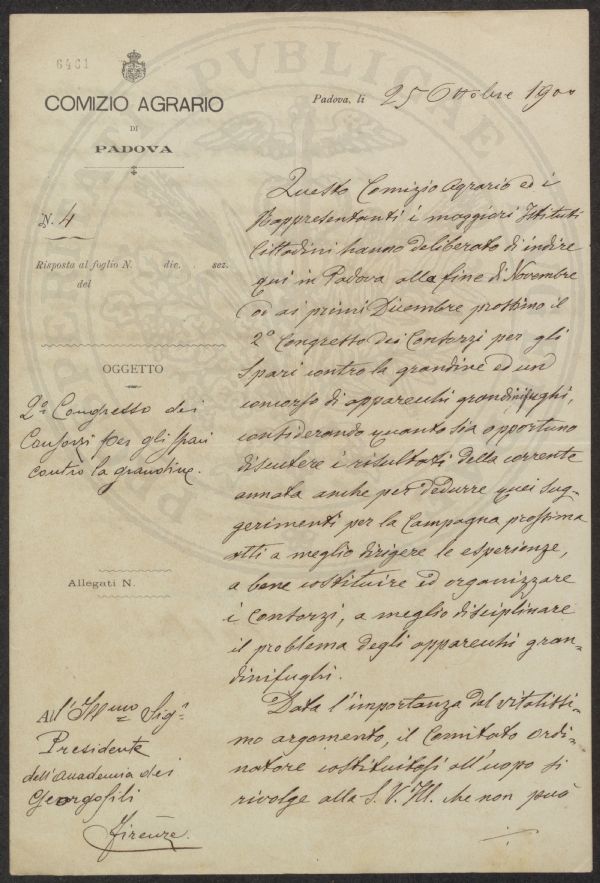 6461
COMIZIO AGRARIO
DI
PADOVA
Padova, li 25 Ottobre 1900
N. 4
Risposta al foglio N. dic. sez.
del
OGGETTO
2º Congresso dei
Consorzi per gli spari
contro la grandine.
Allegati N.
All'Ill.mo Sigr
Presidente
dell'Accademia dei
Georgofili
Firenze.
Questo Comizio Agrario ed i
Rappresentanti i maggiori Istituti
Cittadini hanno deliberato di indire
qui in Padova alla fine di Novembre
od ai primi Dicembre prossimo il
2º Congresso dei Consorzi per gli
spari contro la grandine ed un
concorso di apparecchi grandinifughi,
considerando quanto sia opportuno
discutere i risultati della corrente
annata anche per dedurre quei sug-
gerimenti per la Campagna prossima
atti a meglio dirigere le esperienze,
a bene costituire ed organizzare
i Consorzi, a meglio disciplinare
il problema degli apparecchi gran-
dinifughi.
Data l'importanza del vitalissi-
mo argomento, il Comitato ordi-
natore costituitosi all'uopo si
rivolge alla S. V. Ill. che non può
PVBLICAE